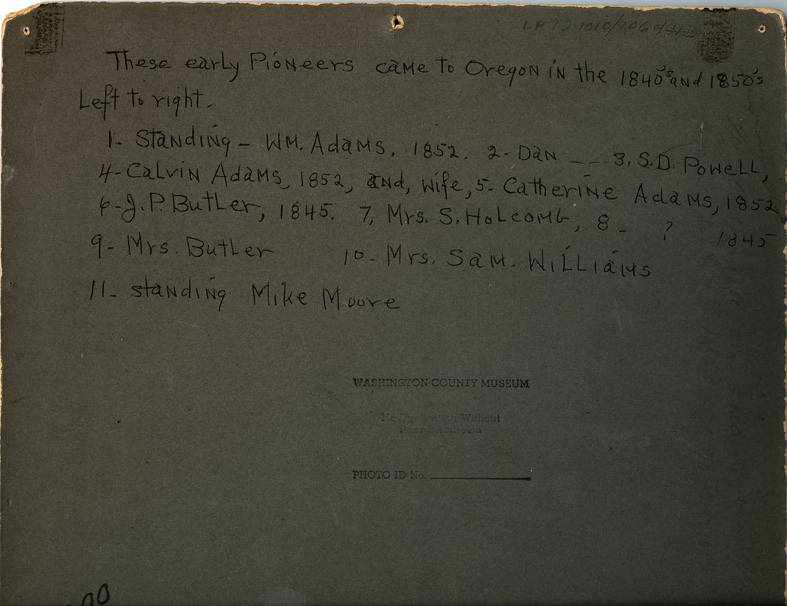 These early Pioneers came to Oregon in the 1840's and 1850's
Left to right.
1- Standing - WM. Adams, 1852. 2- Dan -- 3. S.D. Powell,
4- Calvin Adams, 1852, and, wife, 5- Catherine Adams, 1852
6- J.P. Butler, 1845. 7, Mrs. S. Holcomb, 8- ? 1845
9- Mrs. Butler 10- Mrs. Sam. Williams
11- standing Mike Moore
WASHINGTON COUNTY MUSEUM
Without
PHOTO ID No.
00